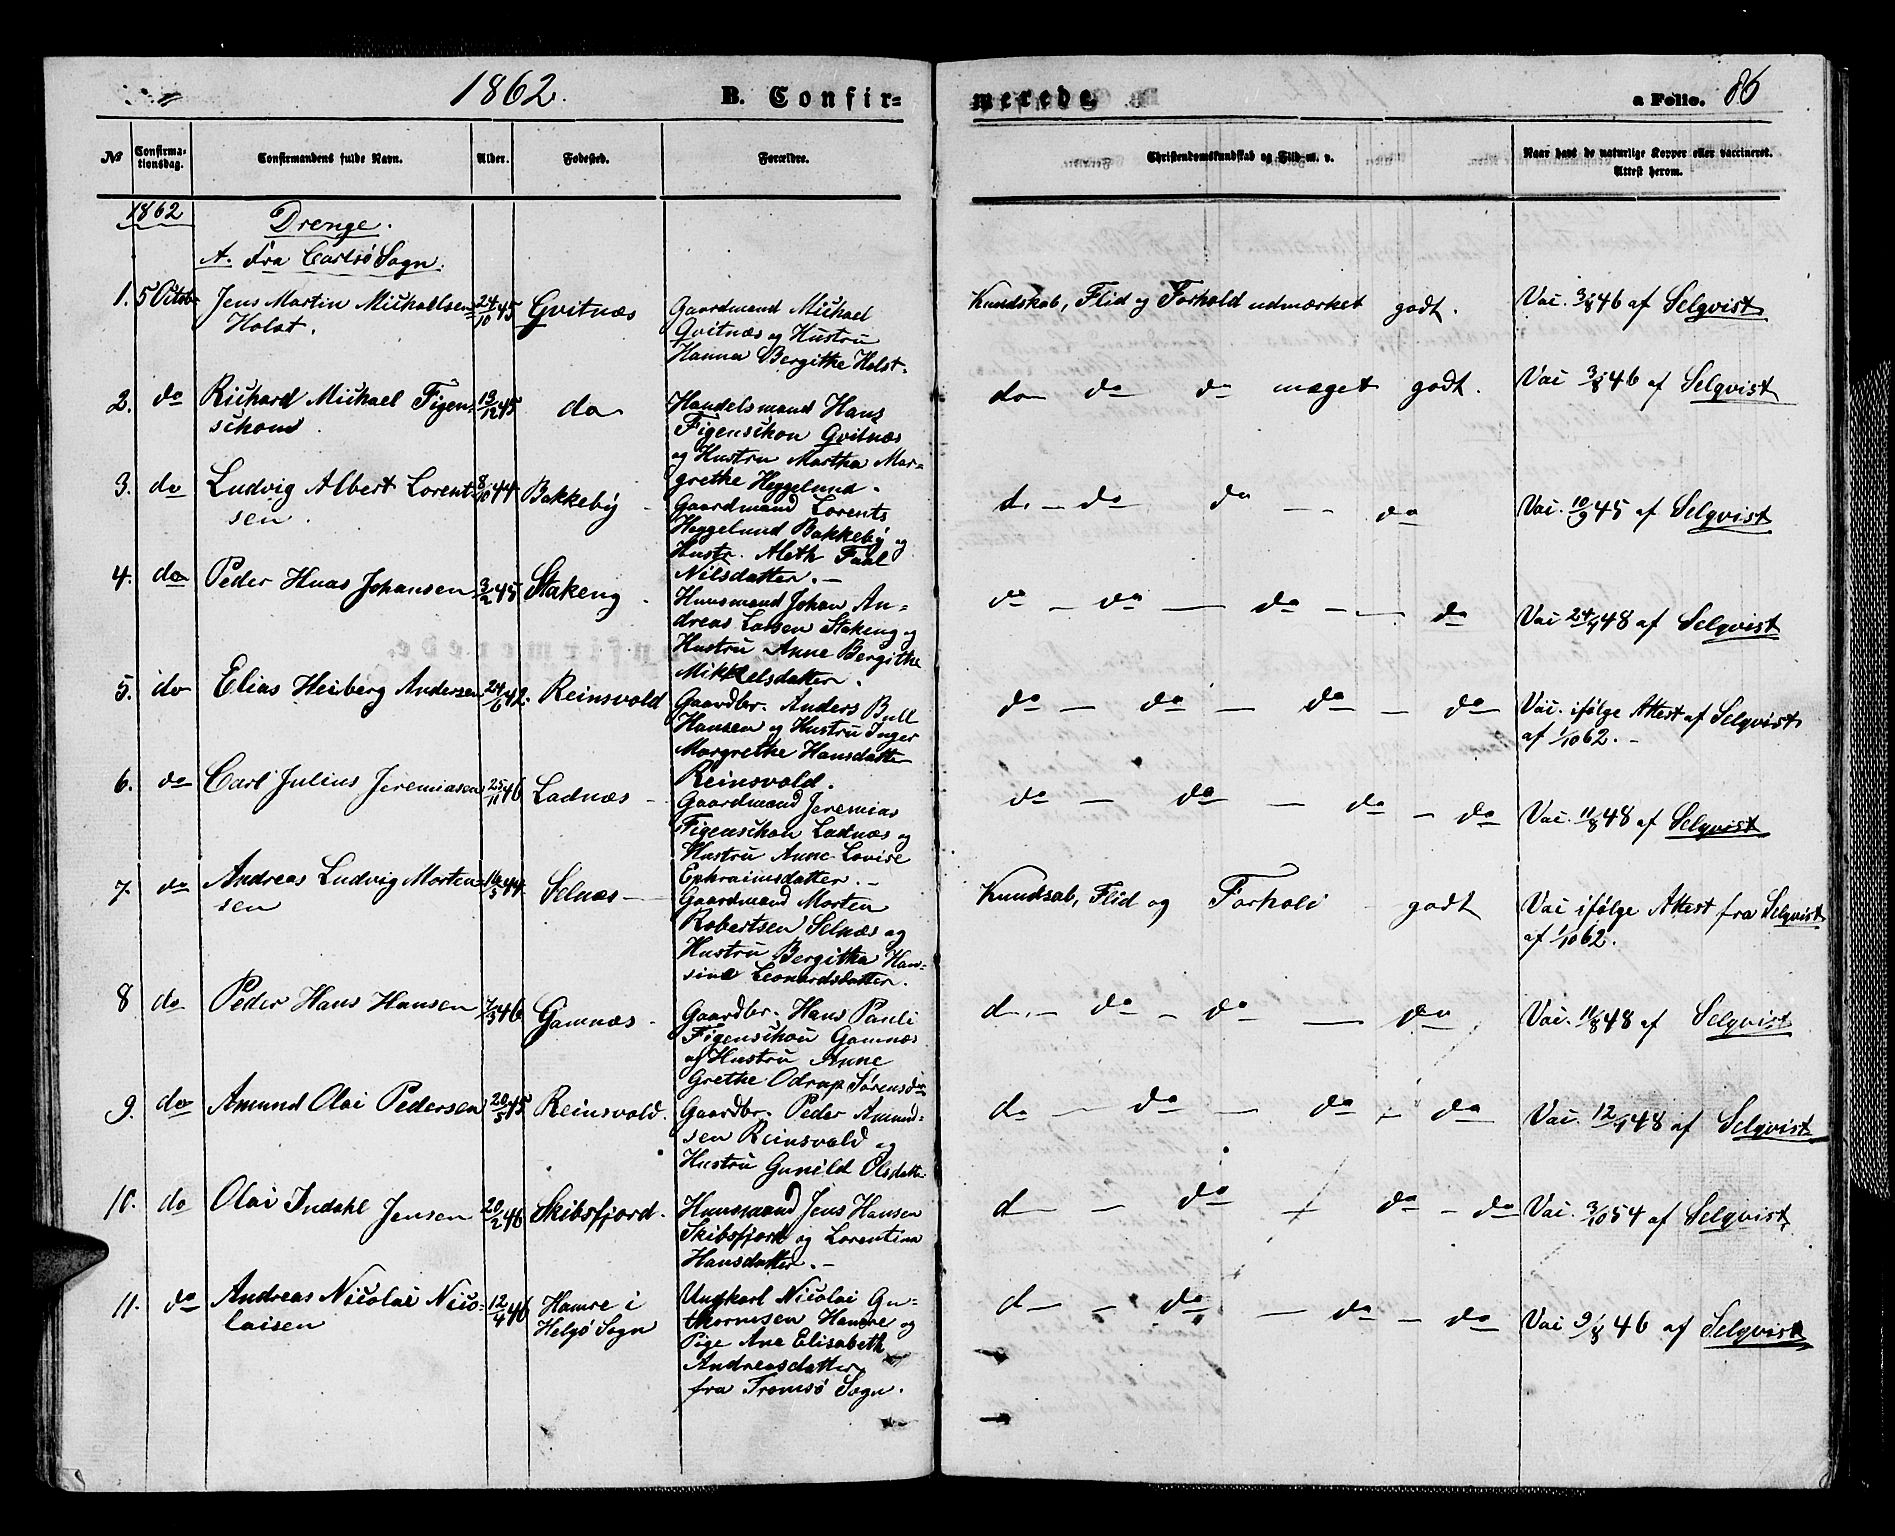 1862. B. Confir=
merede. a Folio. 86
No Confirma-tionsdag. Confirmandens fulde Navn. Alder. Fødested. Forældre. Christendomskundskab og Flid m. v. Naar havt de naturlige Kopper eller vaccineret. Attest herom.
1862 Drenge.
A. Fra Carlsö Sogn.
1. 5 Octob. Jens Martin Michaelsen 24/10 45 Gvitnæs Gaardmand Michael Kundskab, Flid og Forhold udmærket godt. Vac. 3/8 46 af Selqvist
Holst. Qvitnæs og Hustru
Hanna Bergithe Holst.
2. do Richard Michael Figen 13/12 45 do Handelsmand Hans do do do meget godt. Vac 3/8 46 af Selqvist
schou. Figenschou Qvitnæs
og Hustru Martha Mar-
grethe Heggelund.
3. do Ludvig Albert Lorent 8/10 44 Bakkeby Gaardmand Lorents d. - do do - - do Vac. 10/9 45 af Selqvist
sen. Heggelund Bakkeby og
Hustr. Aleth Faal
Nilsdatter.-
4. do Peder Huas Johansen 3/2 45 Stakeng Huusmand Johan An- do - do - do - - do Vac 24/9 48 af Selqvist
dreas Larsen Stakeng og
Hustru Anne Bergithe
Mikkelsdatter.
5. do Elias Heiberg Andersen 24/6 42. Reinsvold Gaardbr. Anders Bull do - do - do - do Vac. ifølge Attest af Selqvist
Hansen og Hustru Inger af 1/10 62.-
Margrethe Hansdatter
Reinsvold.
6. do Carl Julius Jeremiasen 25/11 46 Ladnæs Gaardmand Jeremias do - do - do - do Vac. 11/8 48 af Selqvist
Figenschou Ladnæs og
Hustru Anne Lovise
Ephraimsdatter.-
7. do Andreas Ludvig Morten= 16/5 44. Selnæs Gaardmand Morten Kundsab, Flid og Forhold godt Vac ifølge Attest fra Selqvist
sen Robertsen Selnæs og af 1/10 62.
Hustru Bergitha Han-
sine Leonardsdatter.
8 do Peder Hans Hansen 7/3 46 Gamnæs Gaardbr. Hans Pauli d. - do - do - do Vac. 11/8 48 af Selqvist
Figenschou Gamnæs
og Hustru Anne
Grethe Odrup Sørensdr
9. do Amund Olai Pedersen 20/5 45 Reinsvold. Gaardbr. Peder Amund- do - do - do - do Vac. 12/9 48 af Selqvist
sen Reinsvold og
Hustru Gunild Olsdatter
10. do Olai Indahl Jensen 20/2 46 Skibsfjord. Huusmand Jens Hansen d - - do - do - do Vac. 3/10 54 af Selqvist
Skibsfjord og Lorentina
Hansdatter.-
11. do Andreas Nicolai Nico- 12/4 46 Hamre i Ungkarl Nicolai Gu- d - - do - do - do Vac 9/8 46 af Selqvist
laisen Helgö Sogn thormsen Hamre og
Pige Ane Elisabeth
Andreasdatter
fra Tromsö Sogn.